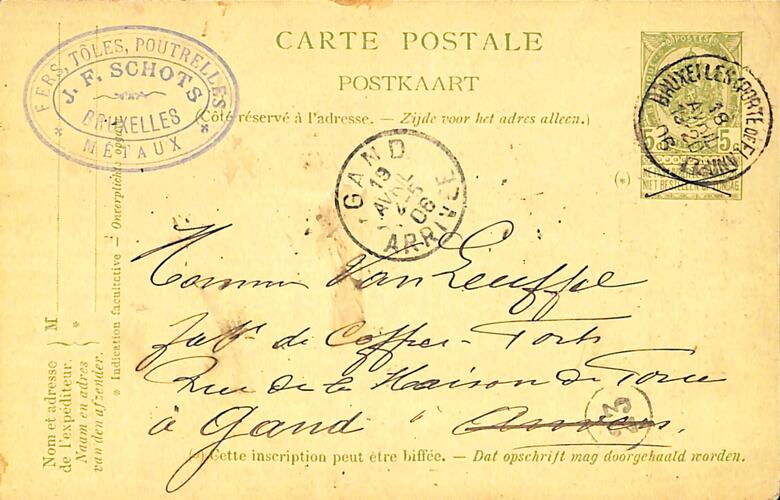 CARTE POSTALE
POSTKAART
(Côté réservé à l'adresse. — Zijde voor het adres alleen.)
FERS, TÔLES, POUTRELLES
J. F. SCHOTS
BRUXELLES
* MÉTAUX *
POSTES
5c 5c
NIET BESTELLEN OP ZONDAG
(*)
BRUXELLES (PORTE DE
18
AVRIL
06
GAND
19
AVRIL
06
ARRIVÉE
Monsieur Van
fabt de Coffres-Forts
Rue de la Maison de Force
à Gand à Anvers.
(*) Cette inscription peut être biffée. — Dat opschrift mag doorgehaald worden.
Nom et adresse
de l'expéditeur.
Naam en adres
van den afzender.
M
*
* Indication facultative — Onverplichte